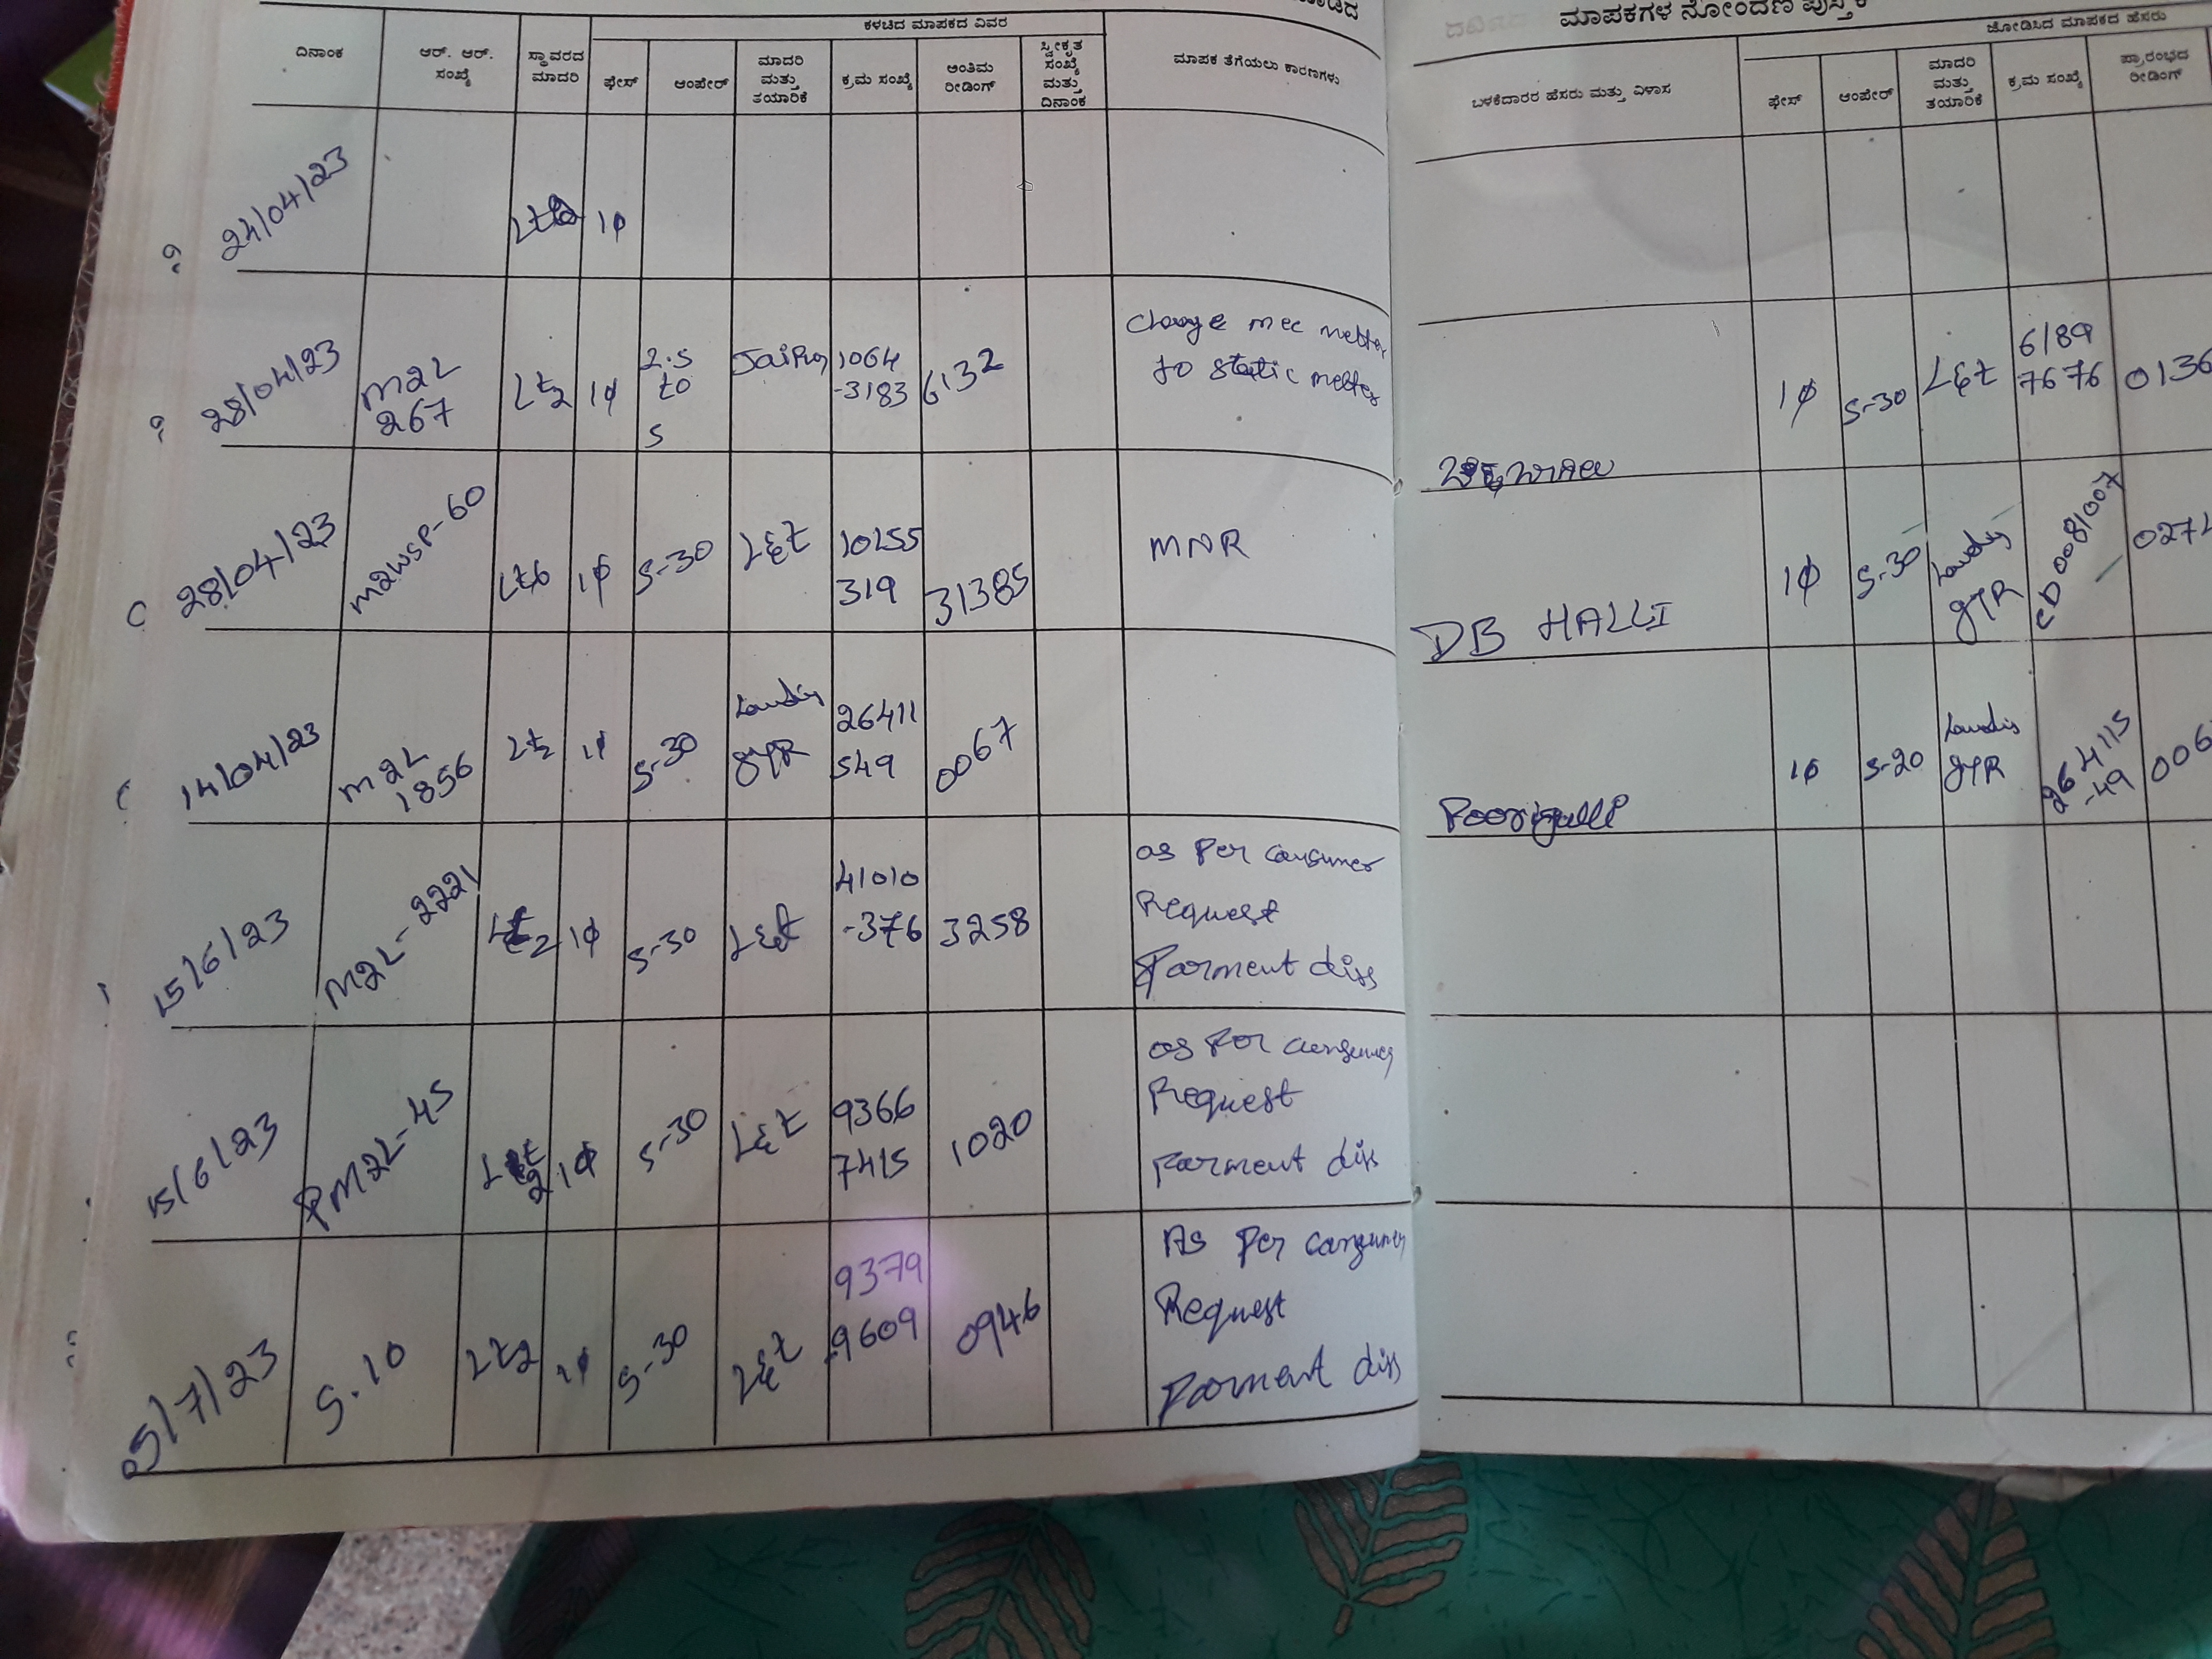 ಮಾಪಕಗಳ ನೋಂದಣಿ ಪುಸ್ತಕ
ಕಳಚಿದ ಮಾಪಕದ ವಿವರ
ದಿನಾಂಕ
ಆರ್. ಆರ್.
ಸಂಖ್ಯೆ
ಸ್ಥಾವರದ
ಮಾದರಿ
ಫೇಸ್
ಆಂಪೇರ್
ಮಾದರಿ
ಮತ್ತು
ತಯಾರಿಕೆ
ಕ್ರಮ ಸಂಖ್ಯೆ
ಅಂತಿಮ
ರೀಡಿಂಗ್
ಸ್ವೀಕೃತ
ಸಂಖ್ಯೆ
ಮತ್ತು
ದಿನಾಂಕ
ಮಾಪಕ ತೆಗೆಯಲು ಕಾರಣಗಳು
ಜೋಡಿಸಿದ ಮಾಪಕದ ಹೆಸರು
ಬಳಕೆದಾರರ ಹೆಸರು ಮತ್ತು ವಿಳಾಸ
ಫೇಸ್
ಆಂಪೇರ್
ಮಾದರಿ
ಮತ್ತು
ತಯಾರಿಕೆ
ಕ್ರಮ ಸಂಖ್ಯೆ
ಪ್ರಾರಂಭದ
ರೀಡಿಂಗ್
24/04/23
1φ
28/04/23
M2L
267
Lt2
1φ
2.5
to
5
1064
-3183
6132
change mec metter
to static metter
1φ
5-30
L&t
6189
7676
0136
28/04/23
M2WSP-60
Lt6
1φ
5-30
L&t
10155
319
31385
MNR
DB HALLI
1φ
5-30
Landis
gYR
CD008/007
14/04/23
M2L
1856
Lt2
1φ
5-30
Landis
gYR
26411
549
0067
Poorigalli
1φ
5-20
Landis
gYR
264115
-49
15/6/23
M2L-2221
1φ
5-30
L&t
41010
-376
3258
as Per consumer
Request
Parment diss
15/6/23
PM2L-45
1φ
5-30
L&t
9366
7415
1020
as Per consumer
Request
Parment diss
5/7/23
S.10
Lt2
1φ
5-30
L&t
9379
9609
0946
As Per consumer
Request
Parment diss